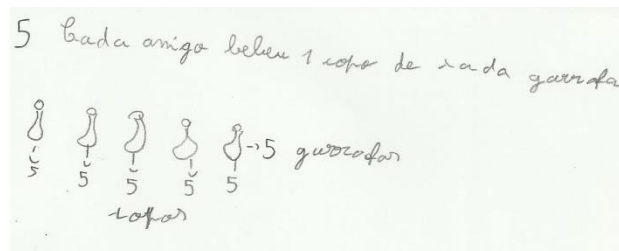 5 Cada amigo bebeu 1 copo de cada garrafa
→ 5 garrafas
5 5 5 5 5
copos